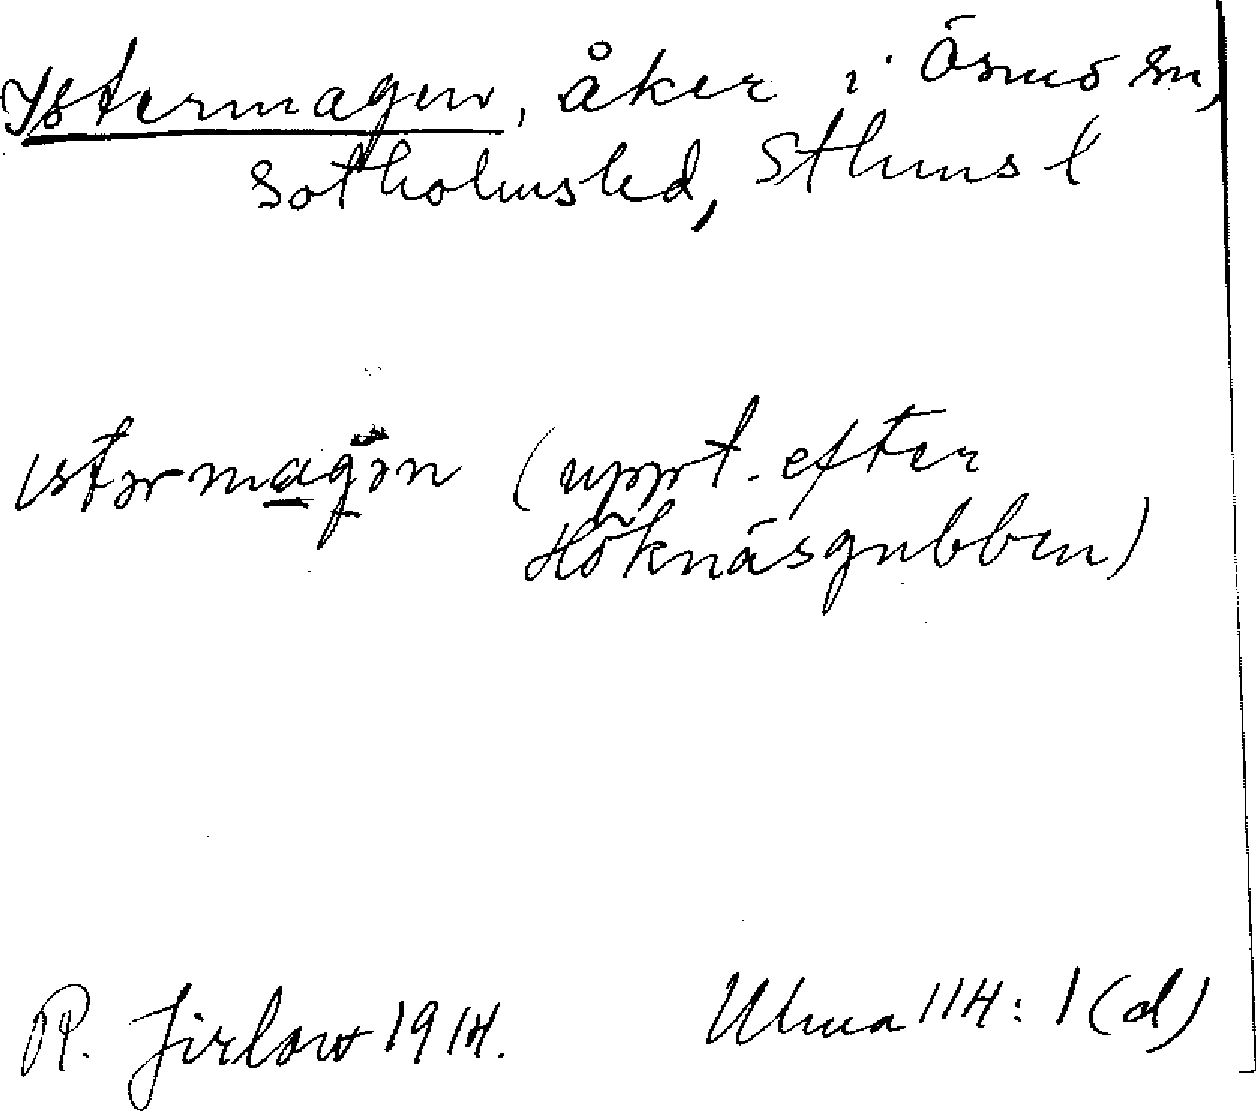 Istermagen, åker i Ösmo sn,
Sotholms hd, Sthms l
ıstərmagən (uppt. efter
Höknäsgubben)
R. Jirlow 1914. Uma 114:1 (d)